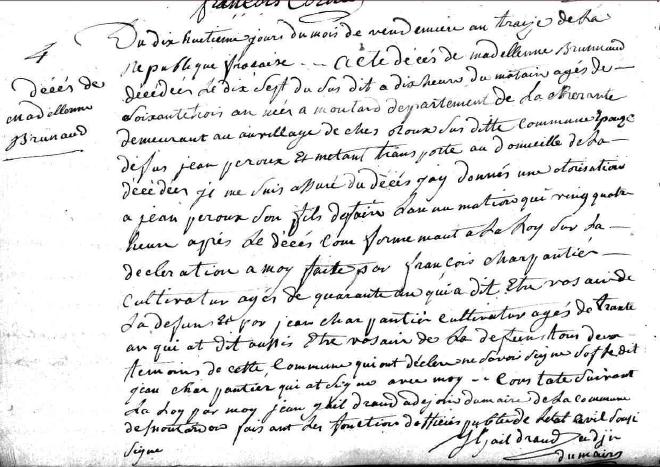 françois
4
décés de
madellenne
Brunaud
Du dix huetieme jours du mois de vendemiere an traize de La
Republique francaise -- acte décés de madellenne Brunaud
décédées Le dix Sept du Sus dit a dix heure du matain agés de
Soixantetrois an néés a moutard departement de La Cherante
demeurant au auvillage de ches oroux Sus ditte Commune Epouze
defus jean peroux Et metant transporte au domicille de La
décédées je me Suis assuré du décés jay donnés une otorisation
a jean peroux Son fils defaire Lan nu mation qui vingquatre
heure aprés Le décés Com forme maut a La Loy Sur La
declaration a moy faite par françois charpantiér
Cultivatur agés de quarante an qui a dit Etre vosain de
La defunt Et por jean char pantier Cultivatur agés de trante
an qui at dit aussis Etre vosain de La defunt tous deux
temoins de cette Commune qui ont déclere ne Savoir Signe Sof Le dit
jean char pantier qui at Signe avec moy -- Cons tate Suivant
La Loy par moy jean gail draud adejoin du maire de La Commune
de moutardon fais ant Les fonction dofficiés publc de Letat Civil Sousi
Signe
JGail draud adjoin
du maire